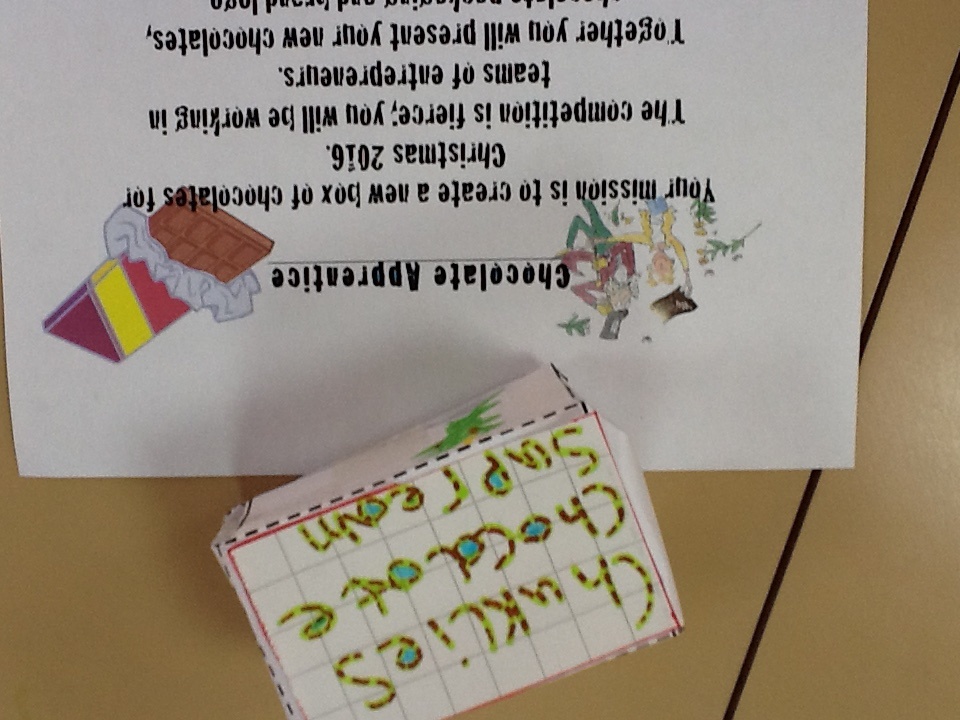 Chocolate Apprentice
Your mission is to create a new box of chocolates for
Christmas 2016.
The competition is fierce; you will be working in
teams of entrepreneurs.
Together you will present your new chocolates,
chocolate packaging and brand logo
Chuklies
Chocolate